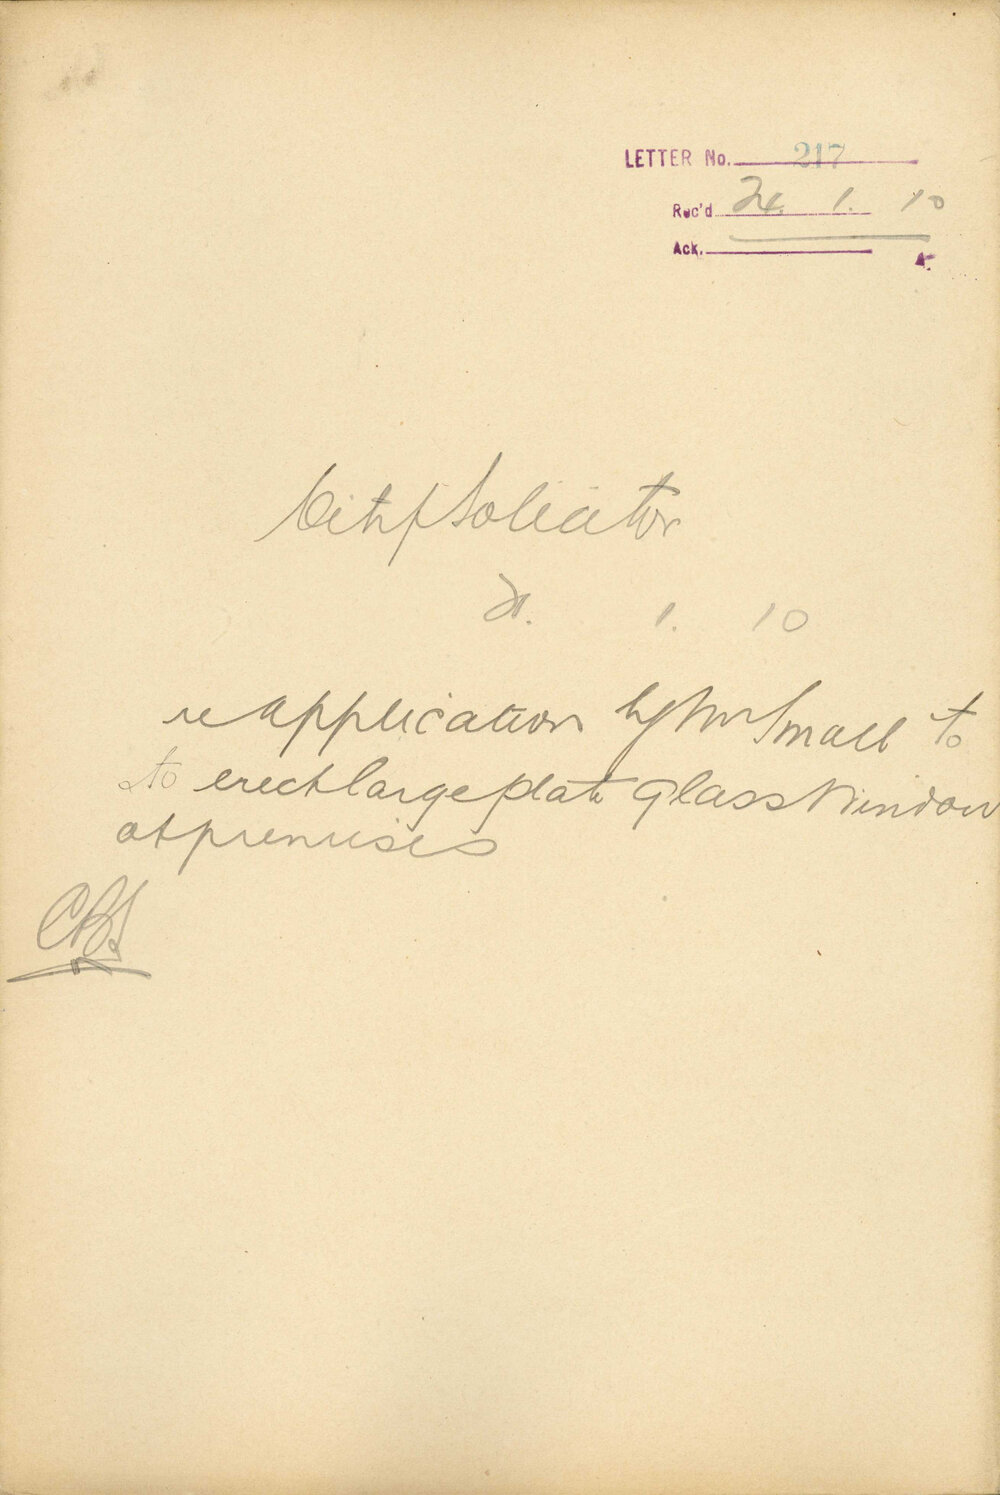 LETTER No. 217
Rec'd 24. 1. 10
Ack.
City Solicitor
21. 1. 10
re application by Mr Small to
to erect large plate glass Window
at premises